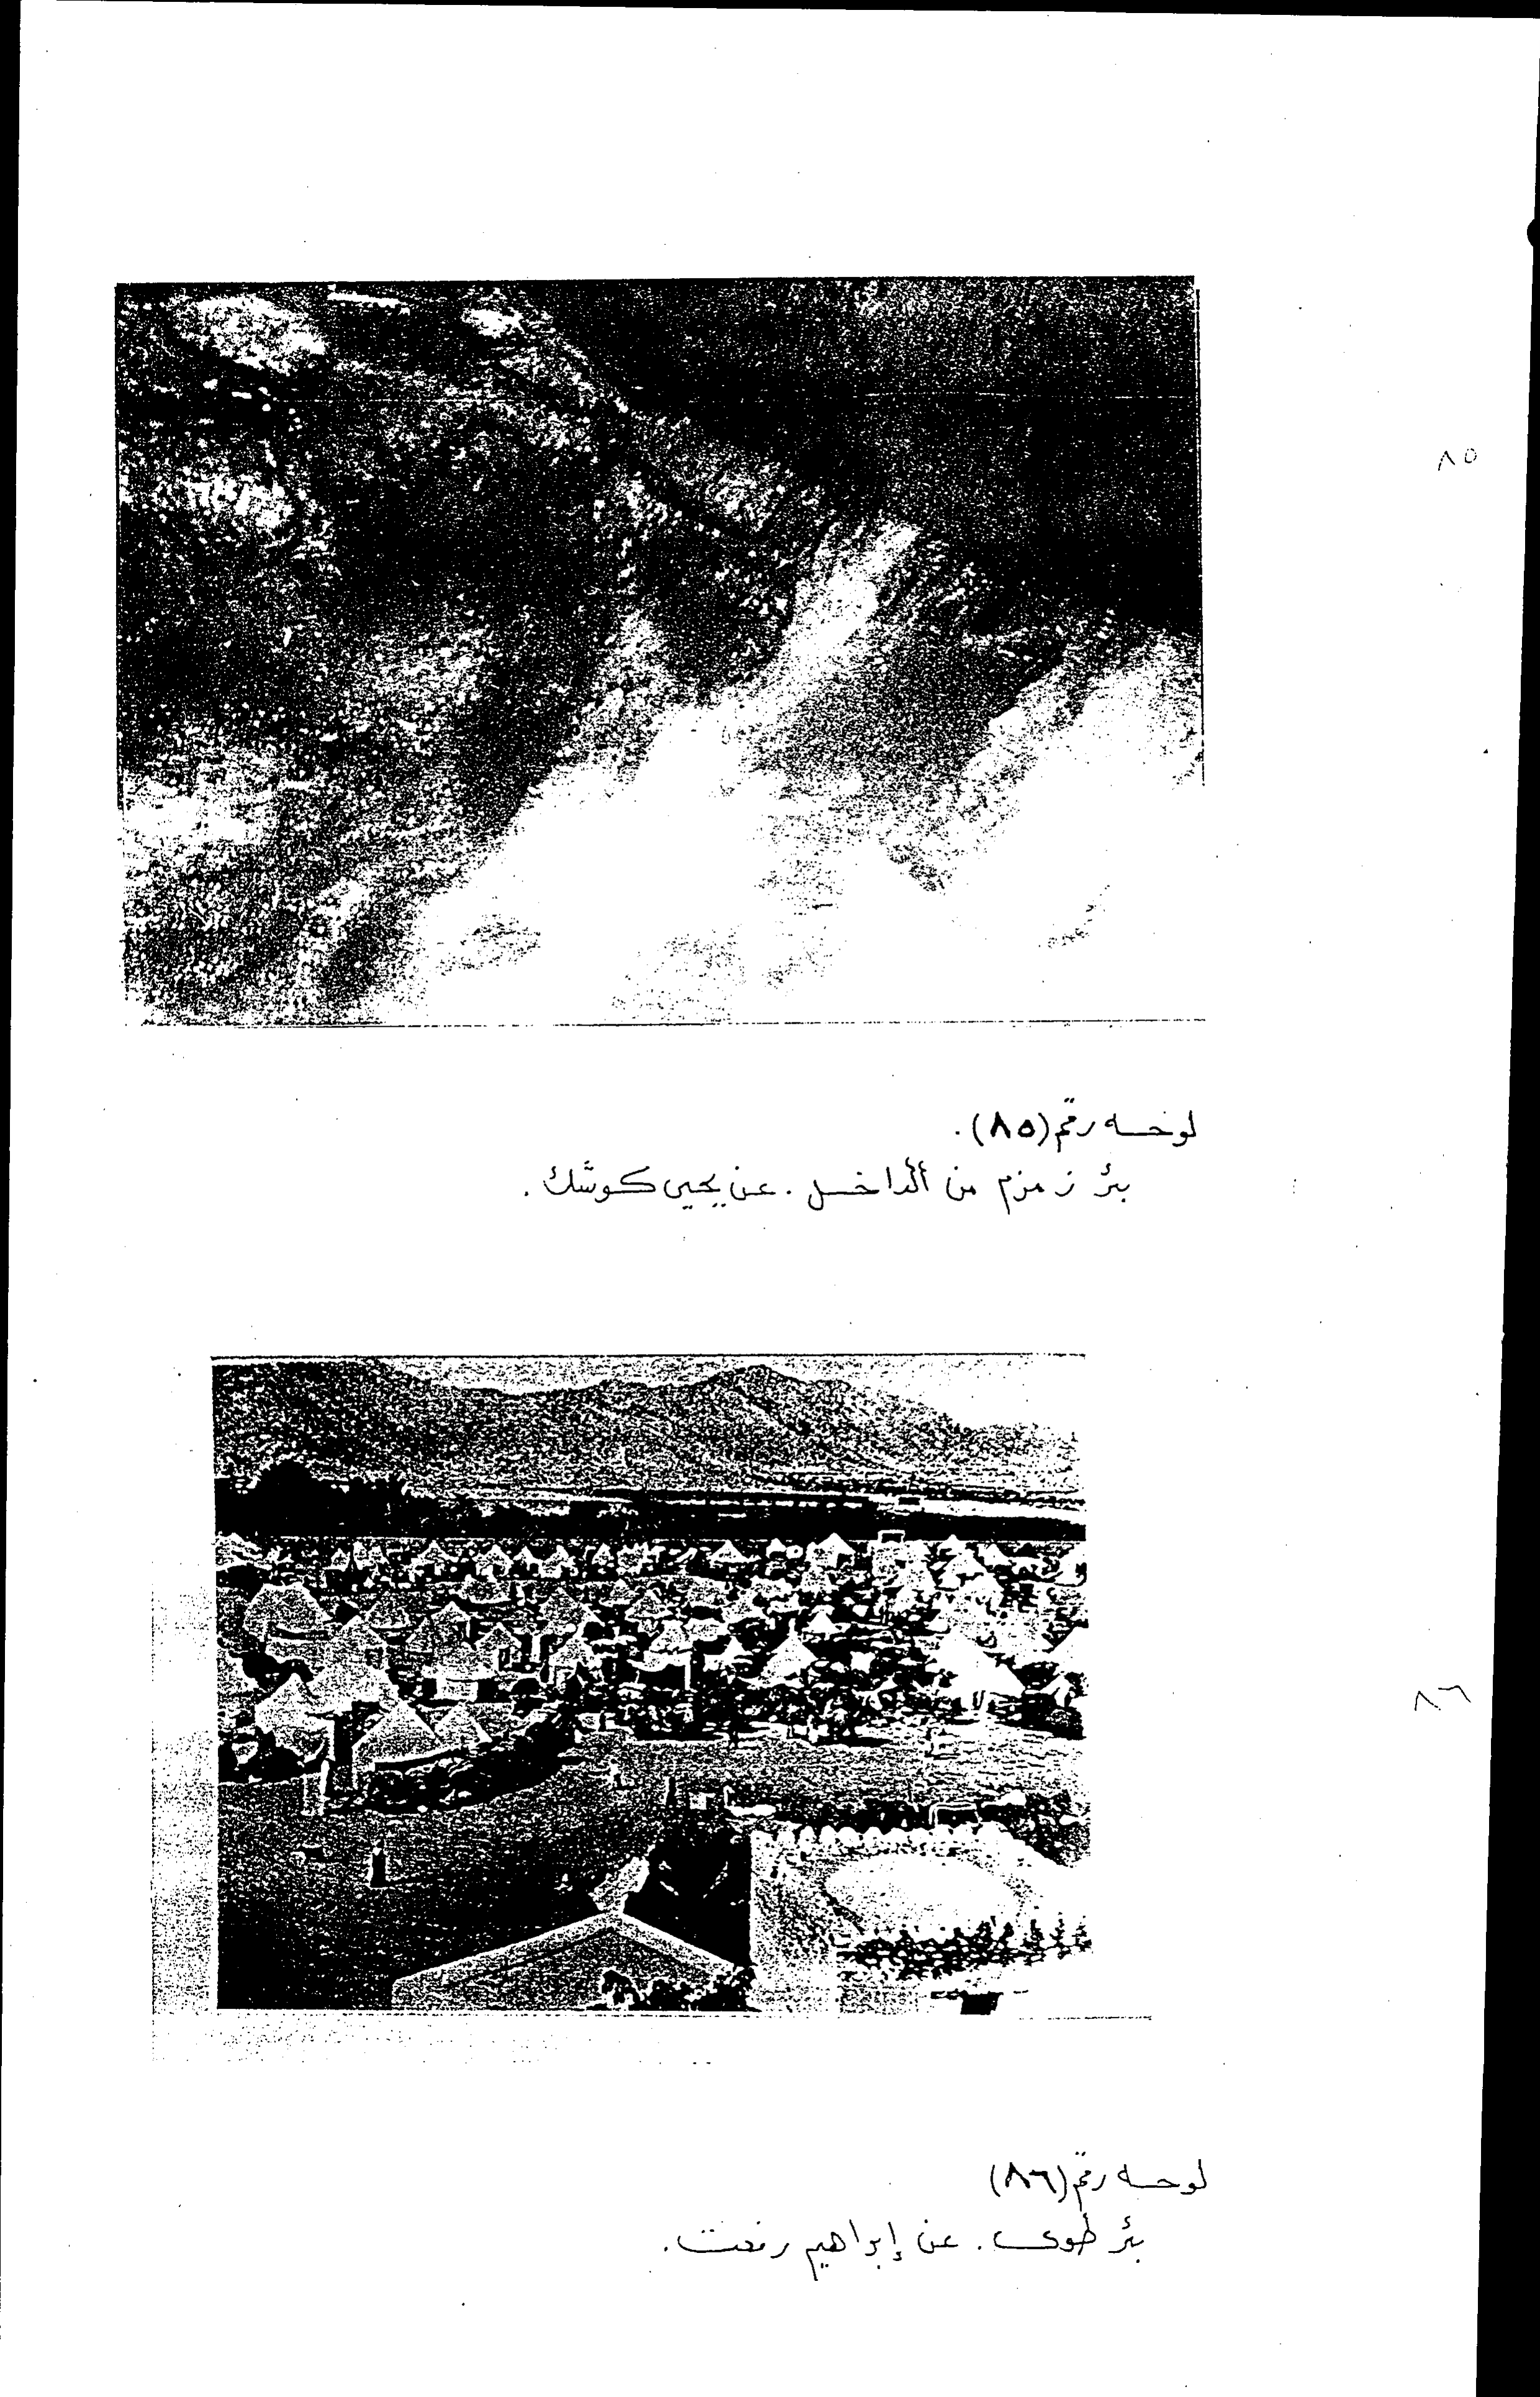 ٨٥
لوحه رقم (٨٥).
بئر زمزم من الداخل. عن يحيى كوشك.
٨٦
لوحه رقم (٨٦)
بئر طوى. عن إبراهيم رفعت.